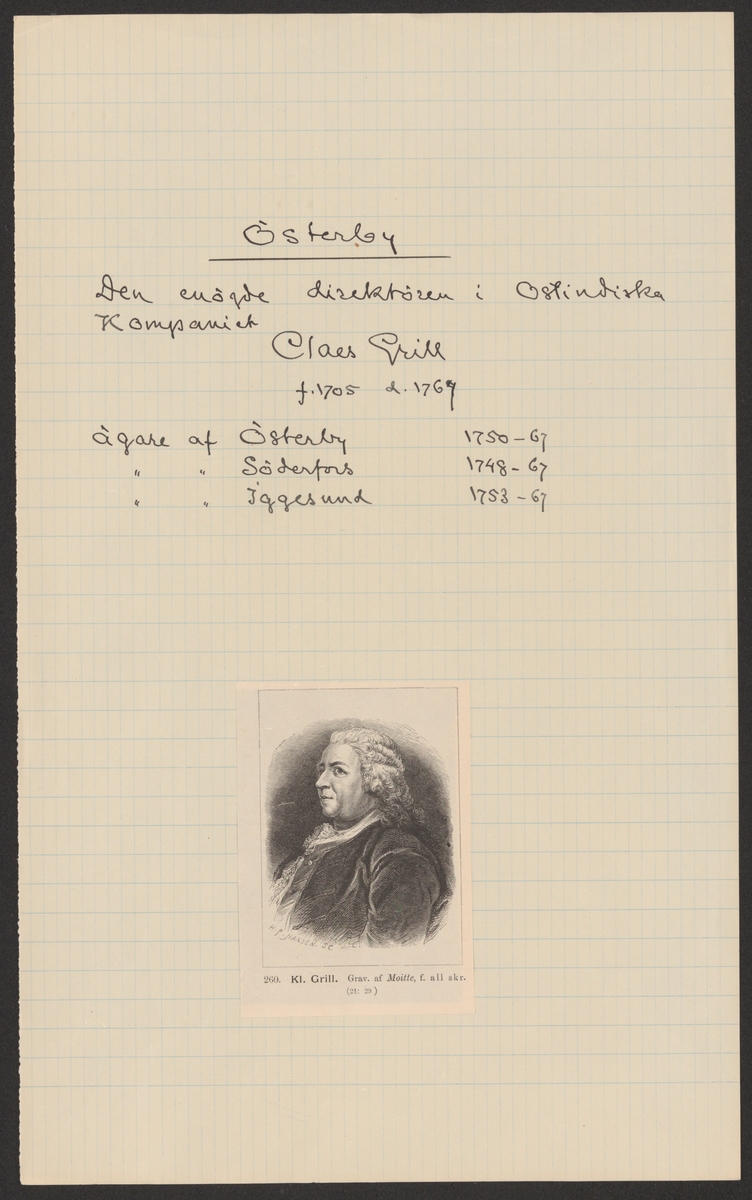 Österby
Den enögde direktören i Ostindiska
Kompaniet
Claes Grill
f. 1705 d. 1767
ägare af Österby 1750-67
" " Söderfors 1748-67
" " Iggesund 1753-67
H. P. HANSEN. SC
260. Kl. Grill. Grav. af Moitte, f. all skr.
(21: 29)